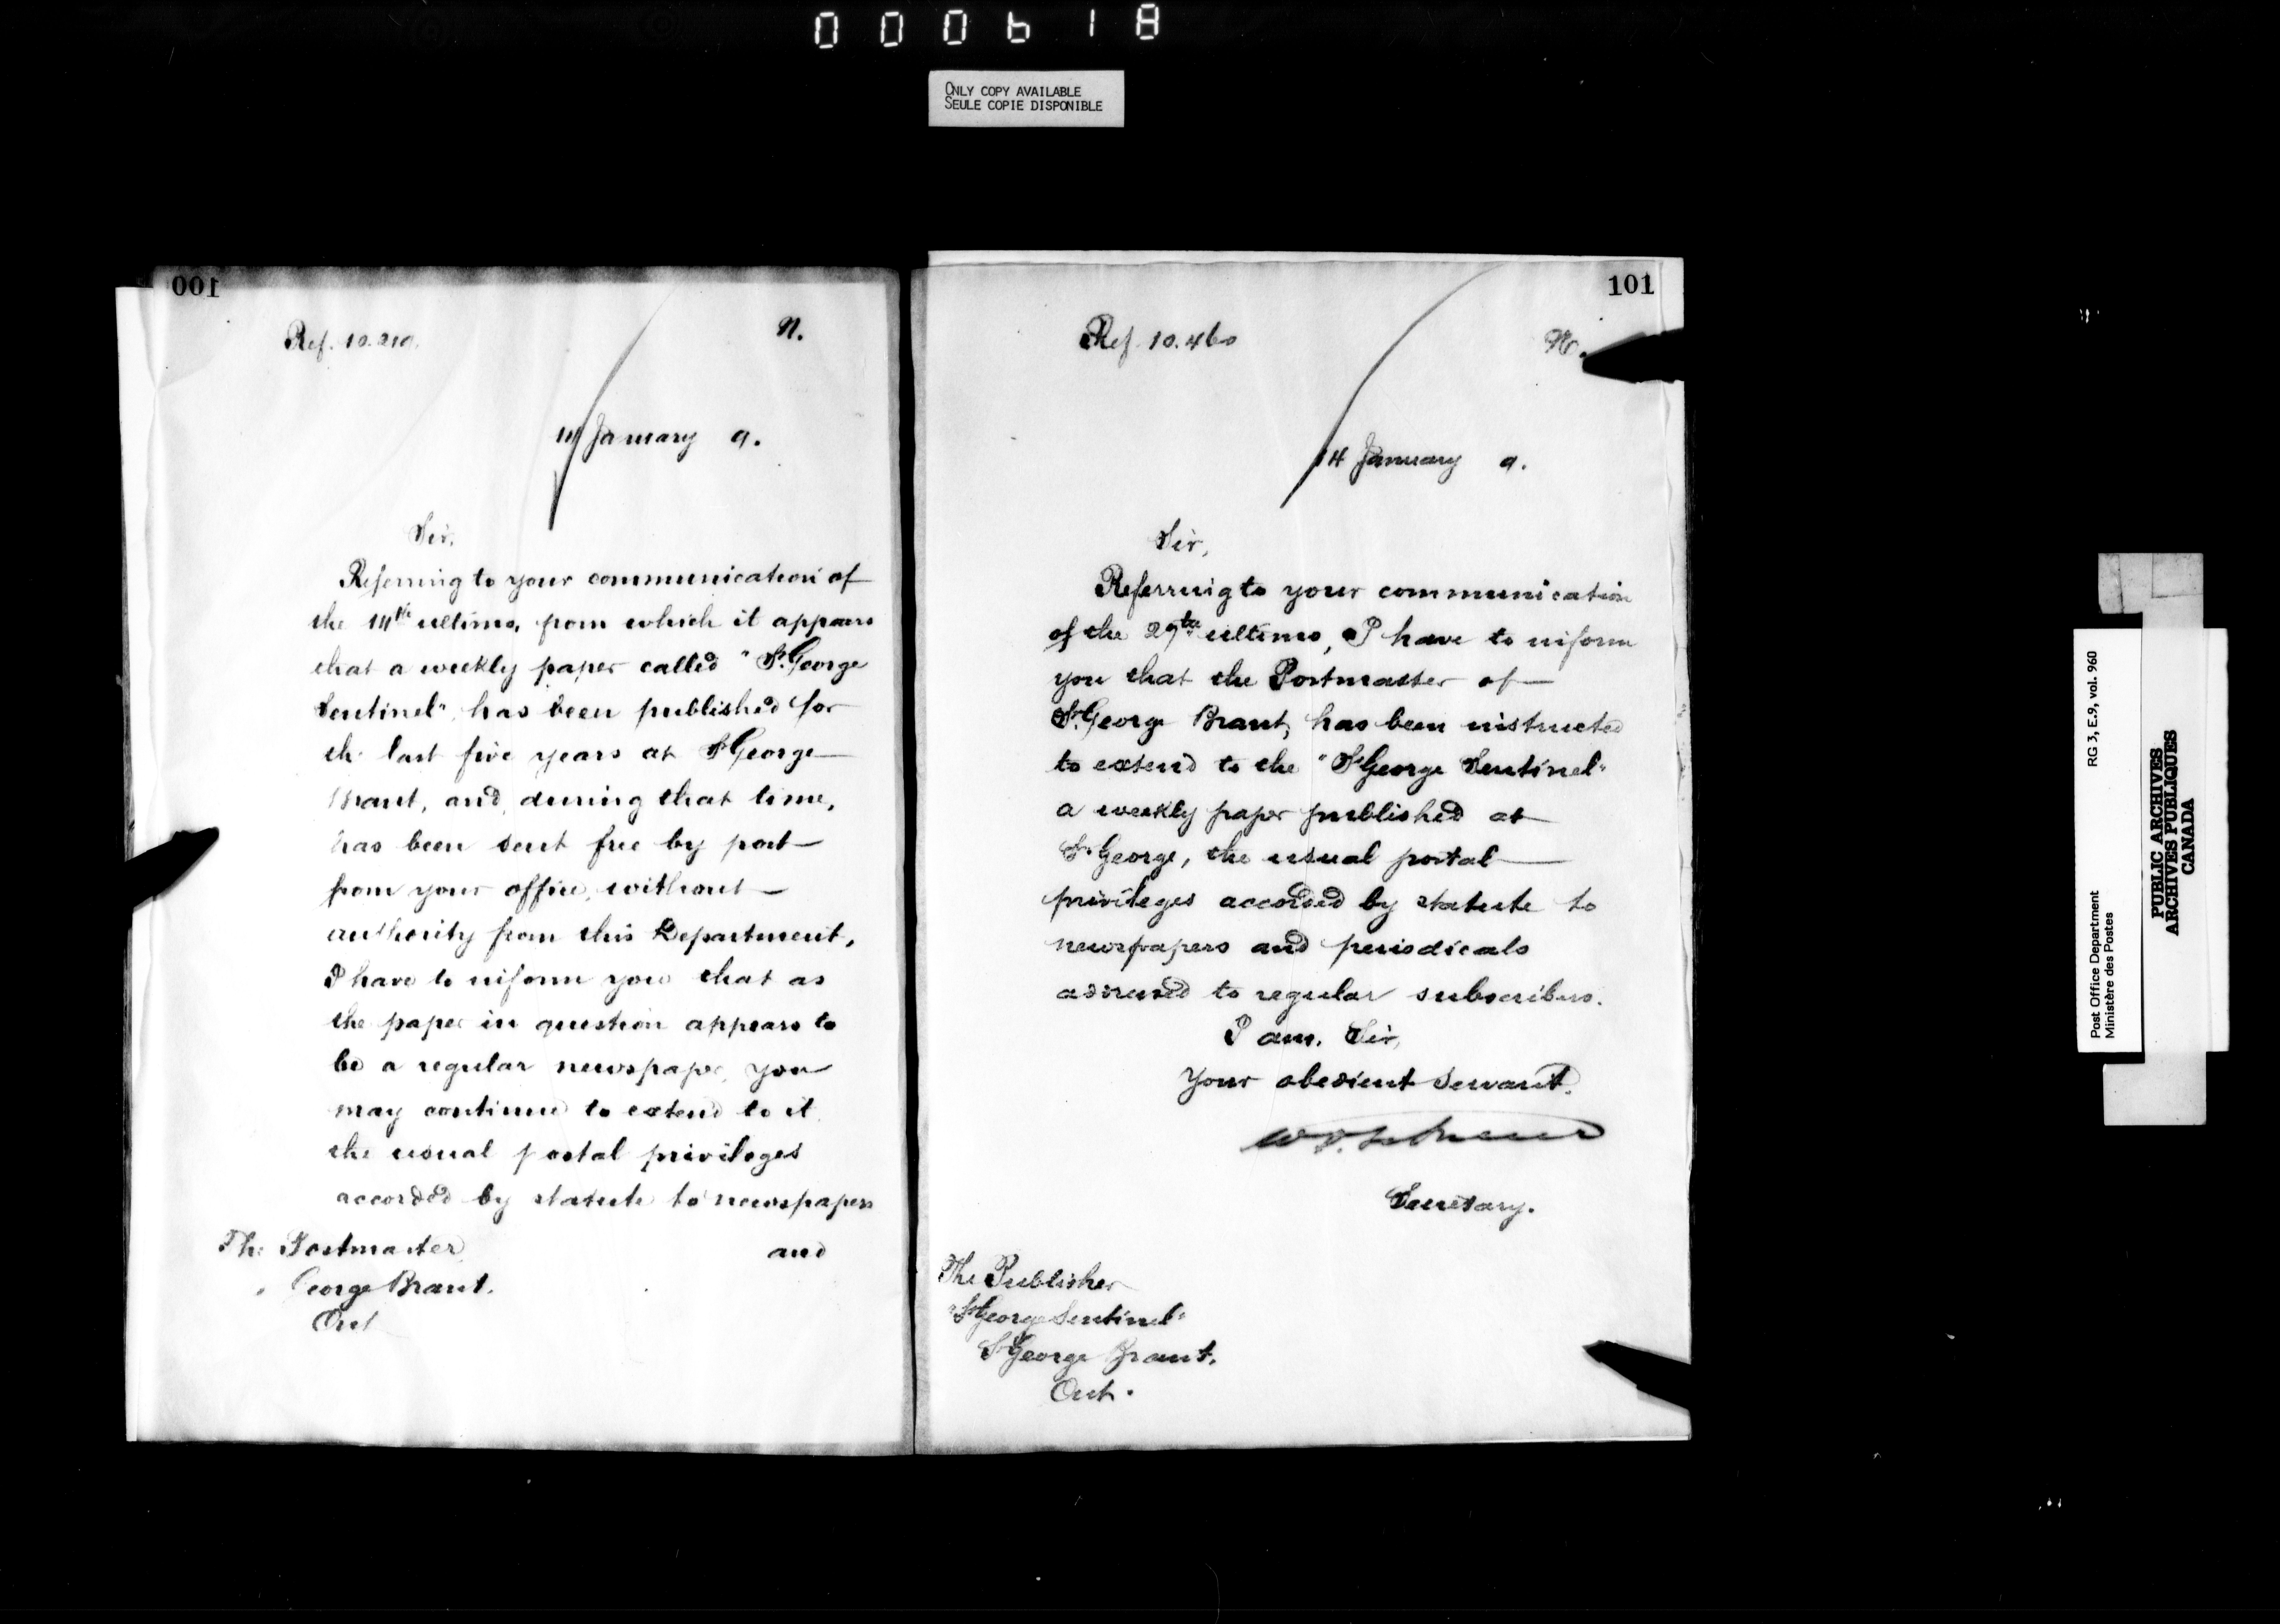 000618
ONLY COPY AVAILABLE
SEULE COPIE DISPONIBLE
100
Ref. 10.210.
N.
14 January 9.
Sir,
Referring to your communication of
the 14th ultimo, from which it appears
that a weekly paper called "St. George
Sentinel" has been published for
the last five years at St George
Brant, and, during that time,
has been sent free by post
from your office, without
authority from this Department,
I have to inform you that as
the paper in question appears to
be a regular newspaper, you
may continue to extend to it
the usual postal privileges
accorded by statute to newspapers
and
The Postmaster
George Brant.
Ont
101
Ref 10.460
N.
14 January 9.
Sir,
Referring to your communication
of the 29th ultimo, I have to inform
you that the Postmaster of
St. George Brant, has been instructed
to extend to the "St George Sentinel"
a weekly paper published at
St George, the usual postal
privileges accorded by statute to
newspapers and periodicals
addressed to regular subscribers.
I am, Sir,
Your obedient servant.
Secretary.
The Publisher
"St George Sentinel"
St George Brant.
Ont.
Post Office Department
Ministère des Postes
RG 3, E.9, vol. 960
PUBLIC ARCHIVES
ARCHIVES PUBLIQUES
CANADA